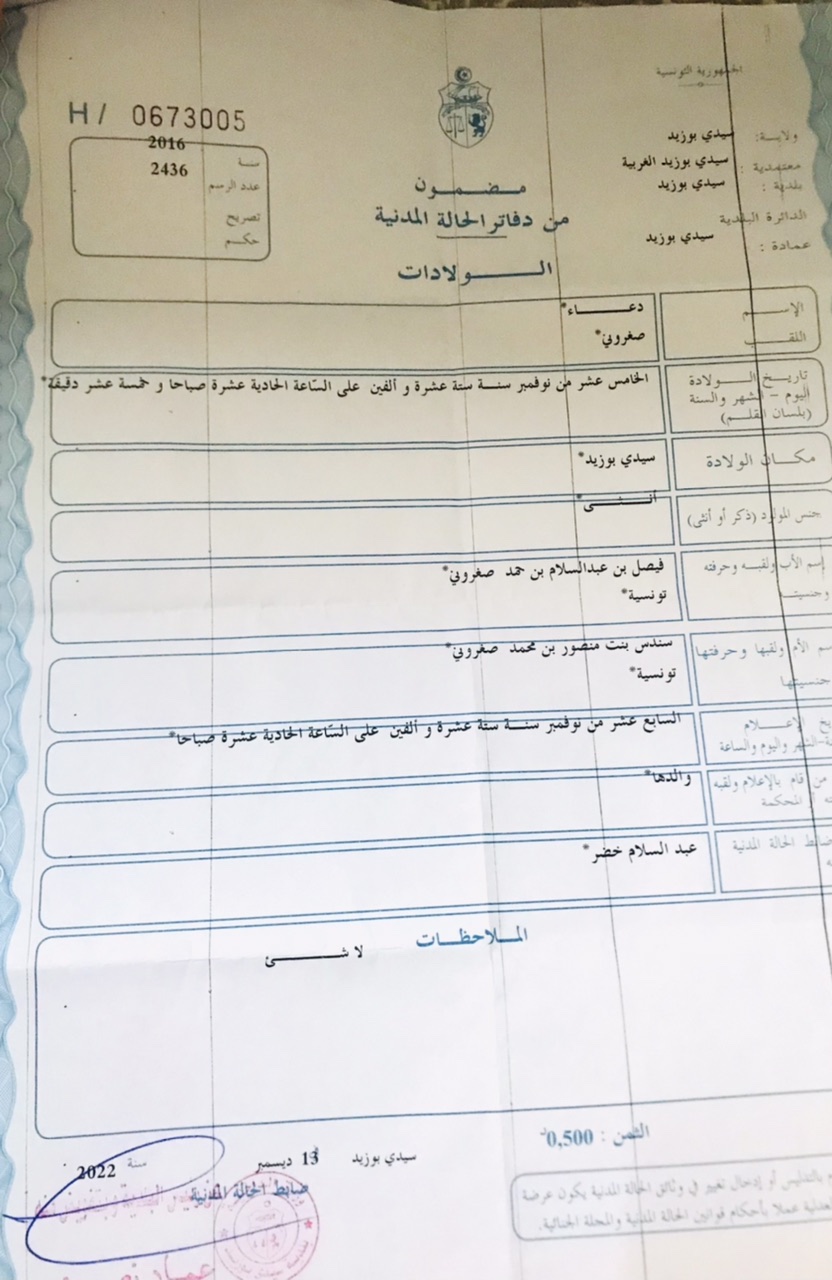 الجمهورية التونسية
H / 0673005
ولاية: سيدي بوزيد
معتمدية : سيدي بوزيد الغربية
بلدية : سيدي بوزيد
الدائرة البلدية
عمادة : سيدي بوزيد
سنة 2016
عدد الرسم 2436
تصريح
حكم
مضمون
من دفاتر الحالة المدنية
الولادات
الإسم دعاء*
اللقب صغروني*
تاريخ الولادة
اليوم - الشهر والسنة
(بلسان القلم)
الخامس عشر من نوفمبر سنة ستة عشرة و ألفين على السّاعة الحادية عشرة صباحا و خمسة عشر دقيقة*
مكان الولادة سيدي بوزيد*
جنس المولود (ذكر أو أنثى) أنثى*
إسم الأب ولقبه وحرفته
وجنسيته
فيصل بن عبدالسلام بن حمد صغروني*
تونسية*
الأم ولقبها وحرفتها
جنسيتها
سندس بنت منصور بن محمد صغروني*
تونسية*
الإعلام
الشهر واليوم والساعة
السابع عشر من نوفمبر سنة ستة عشرة و ألفين على السّاعة الحادية عشرة صباحا*
من قام بالإعلام ولقبه
المحكمة
والدها*
الحالة المدنية
عبد السلام خضر*
الملاحظات
لا شئ
الثمن : 0,500د
سيدي بوزيد 13 ديسمبر سنة 2022
ضابط الحالة المدنية
بالتدليس أو إدخال تغيير في وثائق الحالة المدنية يكون عرضة
عملا بأحكام قوانين الحالة المدنية والمجلة الجنائية.